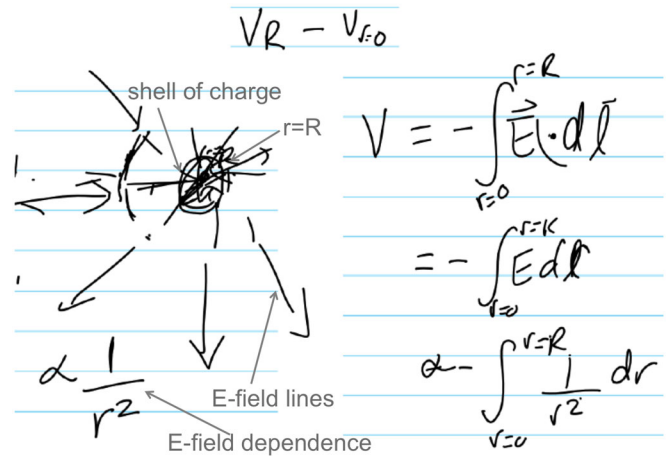 V_R - V_{r=0}
shell of charge
r=R
V = - \int_{r=0}^{r=R} \vec{E} \cdot d\vec{l}
= - \int_{r=0}^{r=R} E dl
∝ - \int_{r=0}^{r=R} \frac{1}{r^2} dr
∝ \frac{1}{r^2}
E-field lines
E-field dependence